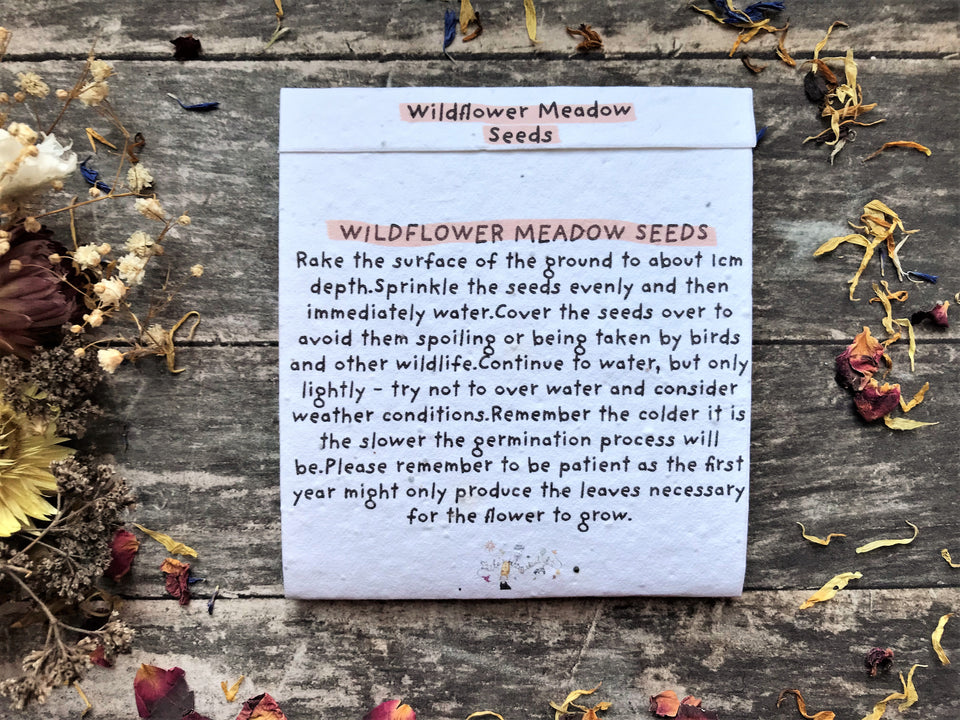 Wildflower Meadow
Seeds
WILDFLOWER MEADOW SEEDS
Rake the surface of the ground to about 1cm
depth.Sprinkle the seeds evenly and then
immediately water.Cover the seeds over to
avoid them spoiling or being taken by birds
and other wildlife.Continue to water, but only
lightly - try not to over water and consider
weather conditions.Remember the colder it is
the slower the germination process will
be.Please remember to be patient as the first
year might only produce the leaves necessary
for the flower to grow.